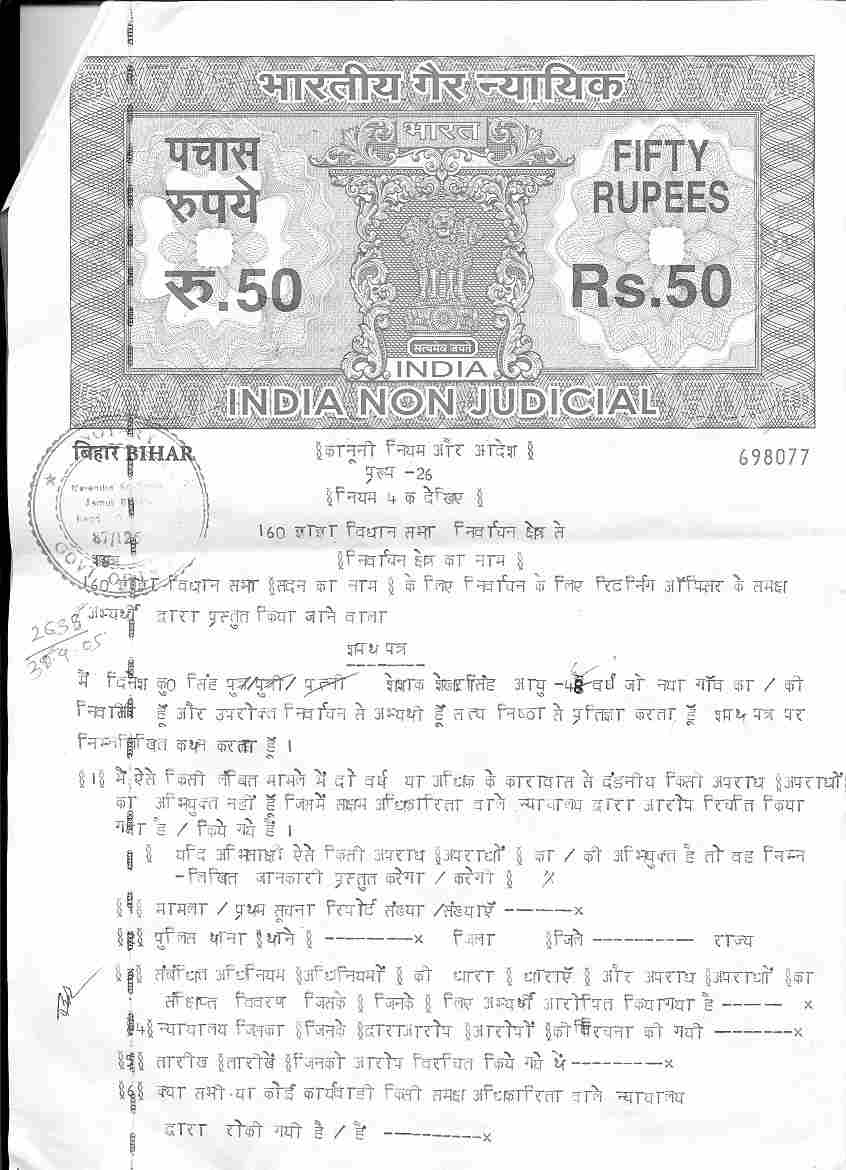 भारतीय गैर न्यायिक
भारत
पचास
रुपये
रु.50
FIFTY
RUPEES
Rs.50
सत्यमेव जयते
INDIA
INDIA NON JUDICIAL
बिहार BIHAR
698077
§कानूनी नियम और आदेश §
प्ररूप -26
§नियम 4 क देखिए §
160 झाझा विधान सभा निर्वाचन क्षेत्र से
§निर्वाचन क्षेत्र का नाम §
160 विधान सभा §सदन का नाम § के लिए निर्वाचन के लिए रिटर्निंग ऑफिसर के समक्ष
अभ्यर्थी द्वारा प्रस्तुत किया जाने वाला
2638
30.9.05
शपथ पत्र
मैं दिनेश कु0 सिंह पुत्र/पुत्री/ पत्नी सिंह आयु -48 वर्ष जो नया गाँव का / की
निवासी हूँ और उपरोक्त निर्वाचन से अभ्यर्थी हूँ सत्य निष्ठा से प्रतिज्ञा करता हूँ शपथ पत्र पर
निम्नलिखित कथन करता हूँ ।
§1§ मैं ऐसे किसी लंबित मामले में दो वर्ष या अधिक के कारावास से दंडनीय किसी अपराध §अपराधों§
का अभियुक्त नहीं हूँ जिसमें सक्षम अधिकारिता वाले न्यायालय द्वारा आरोप विरचित किया
गया है / किये गये हैं ।
§ यदि अभिसाक्षी ऐसे किसी अपराध §अपराधों § का / की अभियुक्त है तो वह निम्न
-लिखित जानकारी प्रस्तुत करेगा / करेगी §
§1§ मामला / प्रथम सूचना रिपोर्ट संख्या /संख्याएँ -------x
§2§ पुलिस थाना §थाने § ---------x जिला §जिले ---------- राज्य
§3§ संबंधित अधिनियम §अधिनियमों § की धारा § धाराएँ § और अपराध §अपराधों §का
संक्षिप्त विवरण जिसके § जिनके § लिए अभ्यर्थी आरोपित कियागया है ------ x
§4§ न्यायालय जिसका §जिनके §द्वाराआरोप §आरोपों §की विरचना की गयी --------x
§5§ तारीख §तारीखें §जिनको आरोप विरचित किये गये थे ----------x
§6§ क्या सभी या कोई कार्यवाही किसी समक्ष अधिकारिता वाले न्यायालय
द्वारा रोकी गयी है / हैं ----------x